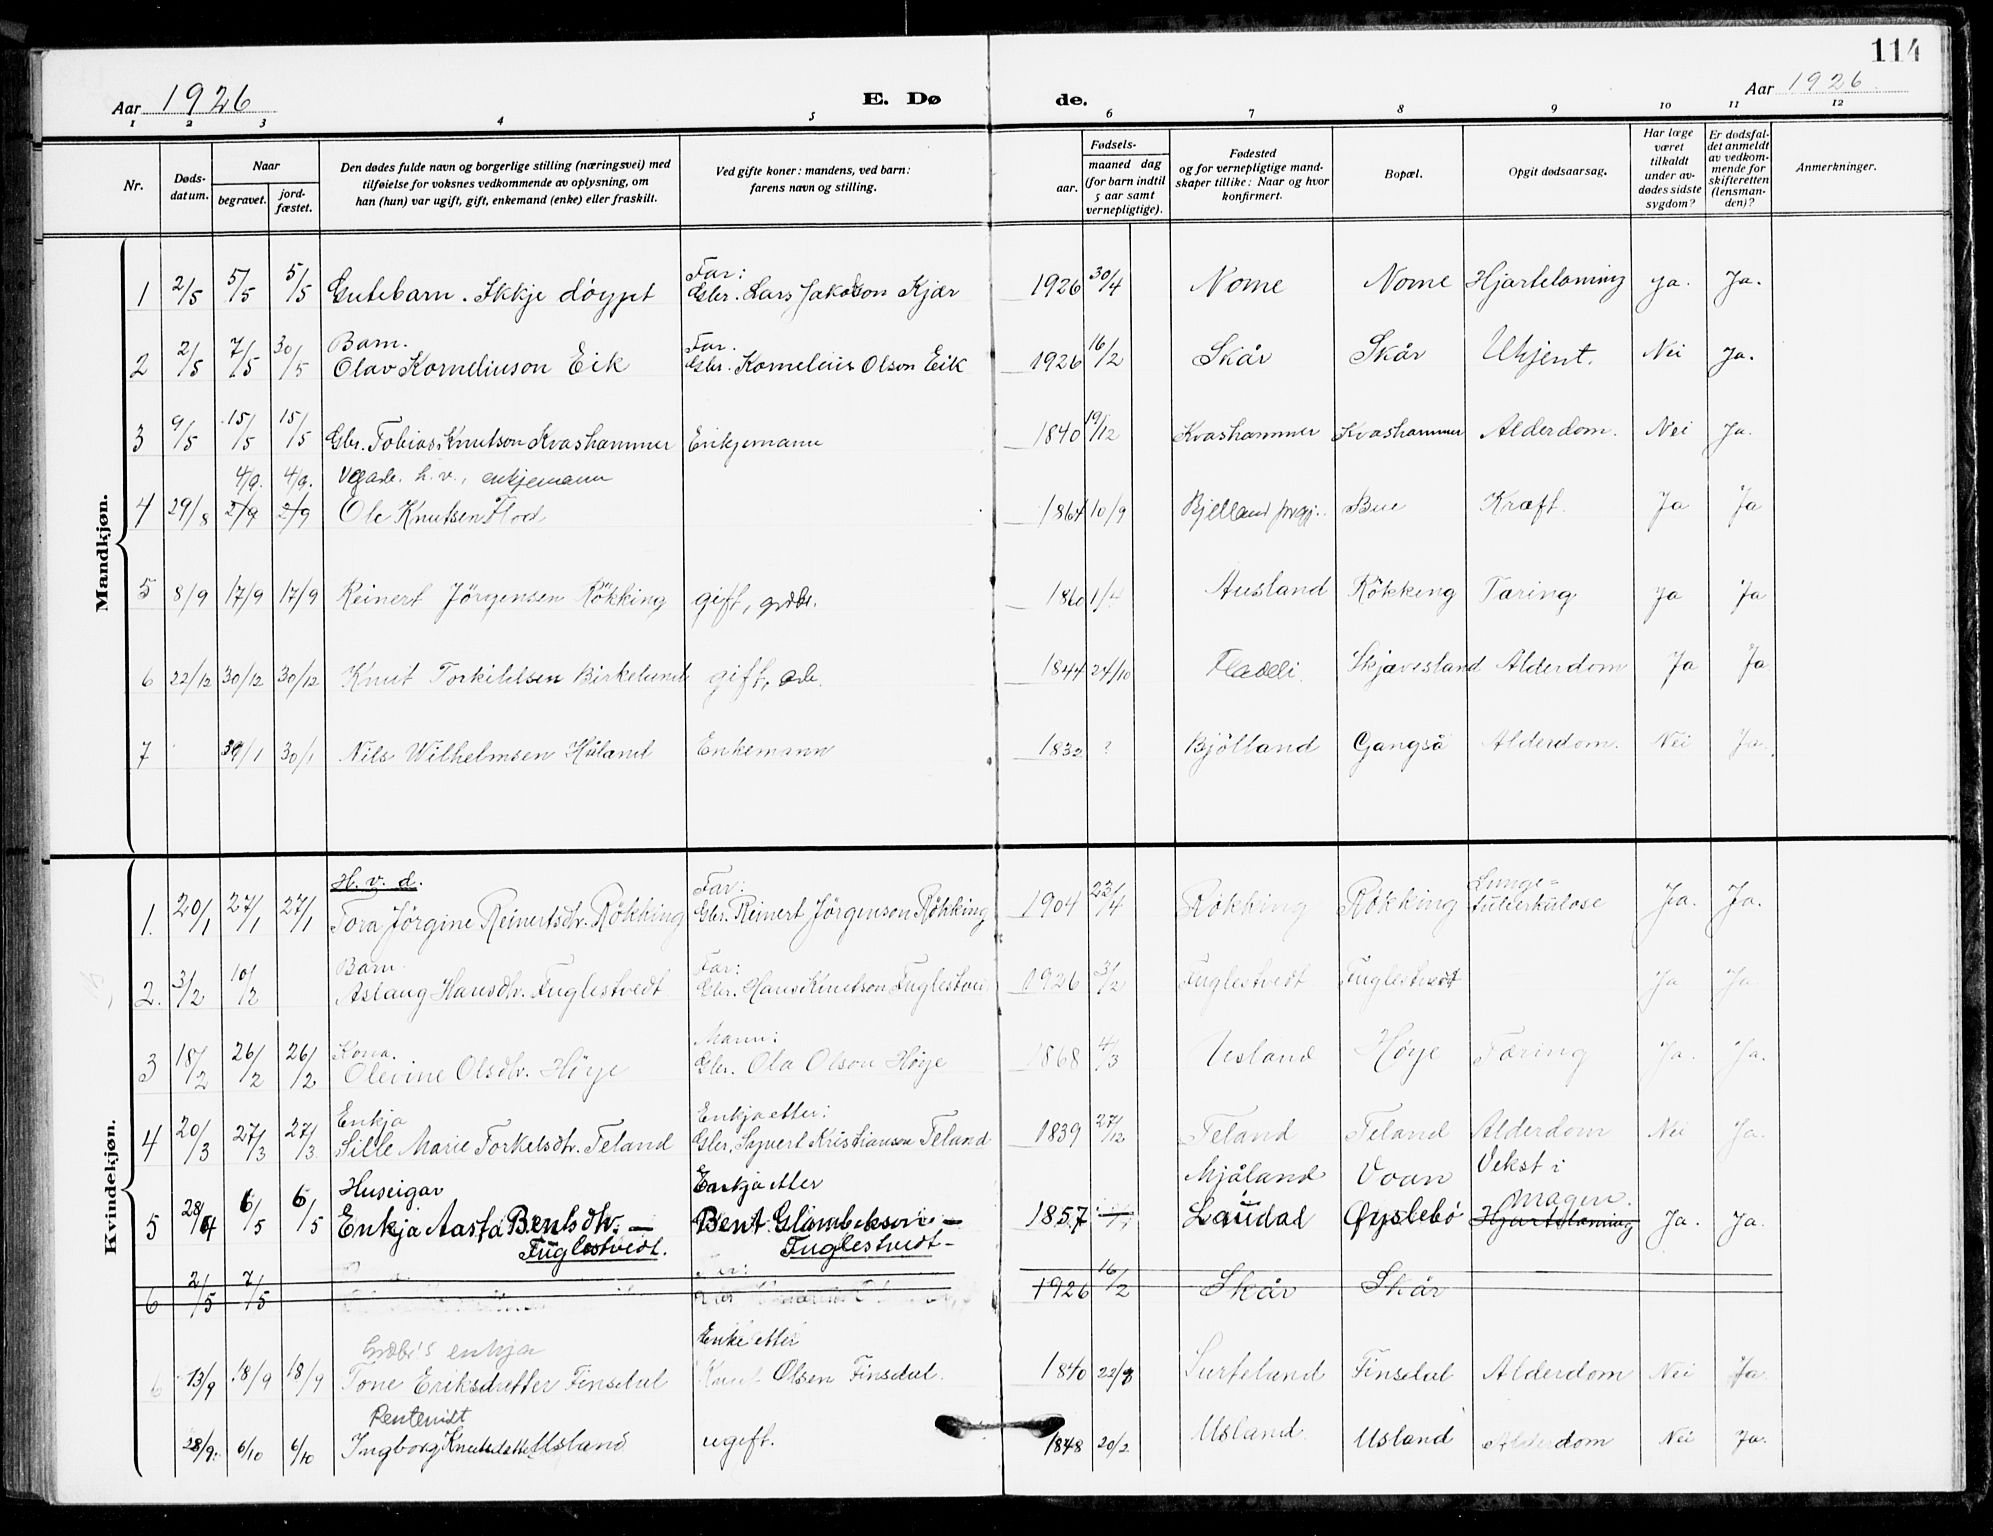 114
Aar 1926 E. Dø de. Aar 1926
1 2 3 4 5 6 7 8 9 10 11 12
Nr. Døds-datum. Naar begravet. jord-fæstet. Den dødes fulde navn og borgerlige stilling (næringsvei) med tilføielse for voksnes vedkommende av oplysning, om han (hun) var ugift, gift, enkemand (enke) eller fraskilt. Ved gifte koner: mandens, ved barn: farens navn og stilling. Fødsels- aar. maaned dag (for barn indtil 5 aar samt vernepligtige). Fødested og for vernepligtige mand-skaper tillike: Naar og hvor konfirmert. Bopæl. Opgit dødsaarsag. Har læge været tilkaldt under av-dødes sidste sygdom? Er dødsfal-det anmeldt av vedkom-mende for skifteretten (lensman-den)? Anmerkninger.
Mandkjøn.
Far:
1 2/5 5/5 5/5 Gutebarn. Ikkje døypt Gbr. Lars Jakobson Kjær 1926 30/4 Nome Nome Hjartelaming Ja. Ja.
Barn. Far.
2 2/5 7/5 30/5 Olav Korneliuson Eik Gbr. Kornelius Olson Eik 1926 16/2 Skår Skår Ukjent. Nei Ja.
3 9/5 15/5 15/5 Gbr. Tobias Knutson Kvashammer Enkjemann 1840 19/12 Kvashammer Kvashammer Alderdom. Nei Ja.
4/9. 4/9. Vegarb. h. v., enkjemann
4 29/8 2/9 2/9 Ole Knutsen Flod 1864 10/9 Bjelland prgj. Bue Kræft. Ja Ja
5 8/9 17/9 17/9 Reinert Jörgensen Rökking gift, grdbr. 1860 1/4 Ausland Rökking Tæring Ja Ja
6 22/12 30/12 30/12 Knut Torkildsen Birkelund gift, arb. 1844 24/10 Fladeli Skjævesland Alderdom Ja Ja
7 30/1 30/1 Nils Wilhelmsen Håland Enkemann 1832 ? Bjölland Gangså Alderdom. Nei Ja.
Kvindekjøn.
H. v. d. Far: Lunge=
1. 20/1 27/1 27/1 Tora Jørgine Reinertsdtr. Røkking Gbr. Reinert Jørgenson Røkking 1904 23/4 Røkking Røkking tuberkulose Ja. Ja.
Barn. Far:
2. 3/2 10/2 Aslaug Hansdtr. Fuglestvedt Gbr. Hans Knutson Fuglestvedt 1926 3/2 Fuglestvedt Fuglestvedt Ja Ja
Kona. Mann:
3 18/2 26/2 26/2 Olevine Olsdtr. Høye Gbr. Ola Olson Høye 1868 4/3 Usland Høye Tæring Ja. Ja.
Enkja Enkja etter:
4 20/3 27/3 27/3 Sille Marie Torkelsdtr. Feland Gbr. Syvert Kristianson Feland 1839 27/12 Feland Feland Alderdom Nei Ja.
Huseigar Enkja etter Mjåland Voan Vekst i magen.
5 28/4 6/5 6/5 Enkja Aasta Bentsdtr. — Bent Glambekson — 1857 Laudal Øyslebø Hjartelaming Ja. Ja.
Fuglestvedt. Fuglestvedt
6 2/5 7/5 1926 16/2 Skår Skår
Grdbr's enkja Enke etter
6 13/9 18/9 18/9 Tone Eriksdatter Finsdal Knut Olsen Finsdal. 1840 Surteland Finsdal Alderdom Nei Ja.
Rentenidt
28/9. 6/10 6/10 Ingborg Knutsdatter Usland ugift. 1848 20/2 Usland Usland Alderdom Nei Ja.